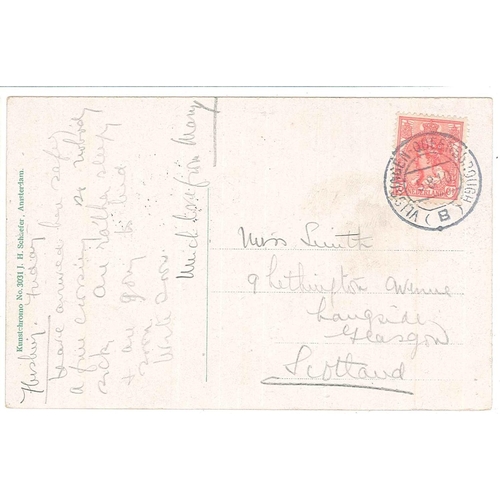 Flushing. Friday
Have arrived here safely
a fine crossing so nobody
sick. Are rather sleepy
& are going to bed
soon.
Write soon.
Much love from Mary
Kunstchromo No. 3031 J. H. Schaefer, Amsterdam.
VLISSINGEN-QUEENSBOROUGH (B)
Miss Smith
9 Lethington Avenue
Langside
Glasgow
Scotland